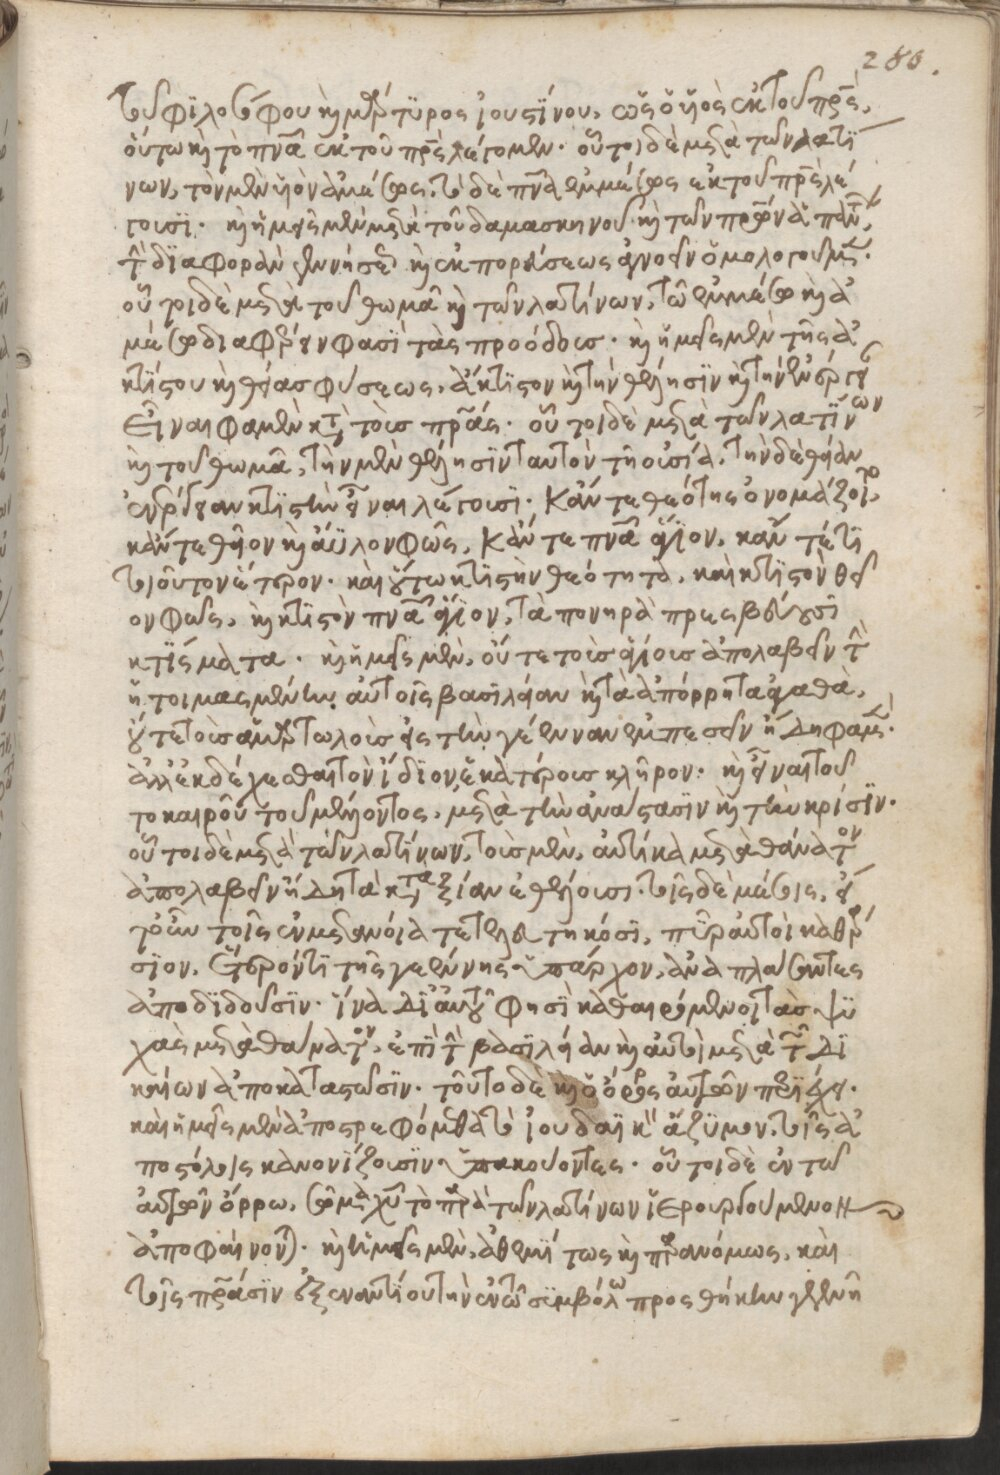 280.
τοῦ φιλοσόφου καὶ μάρτυρος ἰουστίνου, ὡς ὁ υἱὸς ἐκ τοῦ πρς,
οὕτω καὶ τὸ πνα ἐκ τοῦ πρς λέγομεν. οὗτοι δὲ μετὰ τῶν λατί
νων, τὸν μὲν υἱὸν ἀμέσως, τὸ δὲ πνα ἐμμέσως ἐκ τοῦ πρς λέ
γουσι. καὶ ἡμεῖς μὲν μετὰ τοῦ δαμασκηνοῦ καὶ τῶν πρων ἁπάντων,
τὴν διαφορὰν γεννήσεως καὶ ἐκπορεύσεως ἀγνοεῖν ὁμολογοῦμεν.
οὗτοι δὲ μετὰ τοῦ θωμᾶ καὶ τῶν λατίνων, τῶ ἐμμέσω καὶ ἀ
μέσω διαφέρειν φασὶ τὰς προόδους. καὶ ἡμεῖς μὲν τῆς ἀ
κτίστου καὶ θείας φύσεως, ἄκτιστον καὶ τὴν θέλησιν καὶ τὴν ἐνέργειαν
εἶναι φαμὲν κατὰ τοὺς πρας. οὗτοι δὲ μετὰ τῶν λατίνων
καὶ τοῦ θωμᾶ, τὴν μὲν θέλησιν ταυτὸν τῆ οὐσία, τὴν δὲ θείαν
ἐνέργειαν κτιστὴν εἶναι λέγουσι. κἄν τε θεότης ὀνομάζοιτο,
κἄν τε θεῖον καὶ ἄϋλον φῶς, κἄν τε πνα ἅγιον, κἄν τέ τι
τοιοῦτον ἕτερον. καὶ οὕτω κτιστὴν θεότητα, καὶ κτιστὸν θεῖ
ον φῶς, καὶ κτιστὸν πνα ἅγιον, τὰ πονηρὰ πρεσβεύουσι
κτίσματα. καὶ ἡμεῖς μὲν, οὔτε τοὺς ἁγίους ἀπολαβεῖν τὴν
ἡτοιμασμένην αὐτοῖς βασιλείαν καὶ τὰ ἀπόρρητα ἀγαθὰ,
οὔτε τοὺς ἁμαρτωλοὺς εἰς τὴν γέενναν ἐμπεσεῖν ἤδη φαμέν.
ἀλλ' ἐκδέχεσθαι τὸν ἴδιον ἑκατέρους κλῆρον. καὶ εἶναι τοῦ
το καιροῦ τοῦ μέλλοντος, μετὰ τὴν ἀνάστασιν καὶ τὴν κρίσιν.
οὗτοι δὲ μετὰ τῶν λατίνων, τοὺς μὲν, αὐτίκα μετὰ θάνατον
ἀπολαβεῖν ἤδη τὰ κατ' ἀξίαν ἐθέλουσι. τοῖς δὲ μέσοις, ἤ
γουν τοῖς ἐν μετανοία τετελευτηκόσι, πῦρ αὐτοὶ καθάρ
σιον, ἕτερόν τι τῆς γεέννης ὑπάρχον, ἀναπλάσαντες
ἀποδίδουσιν. ἵνα δι' αὐτοῦ φησὶ καθαιρόμενοι τὰς ψυ
χὰς μετὰ θάνατον, ἐπὶ τὴν βασιλείαν καὶ αὐτοὶ μετὰ τῶν δι
καίων ἀποκαταστῶσιν. τοῦτο δὲ καὶ ὁ ὅρος αὐτῶν περιέχει.
καὶ ἡμεῖς μὲν ἀποστρεφόμεθα τὸ ἰουδαϊκὸν ἄζυμον, τοῖς ἀ
ποστόλοις κανονίζουσιν ὑπακούοντες. οὗτοι δὲ ἐν τῶ
αὐτῶν ὅρω, σῶμα χυ τὸ παρὰ τῶν λατίνων ἱερουργούμενον
ἀποφαίνονται. καὶ ἡμεῖς μὲν, ἀθεμίτως καὶ παρανόμως, καὶ
τοῖς πράσιν ἐξεναντίου τὴν ἐν τῶ συμβόλω προσθήκην γεγενῆ